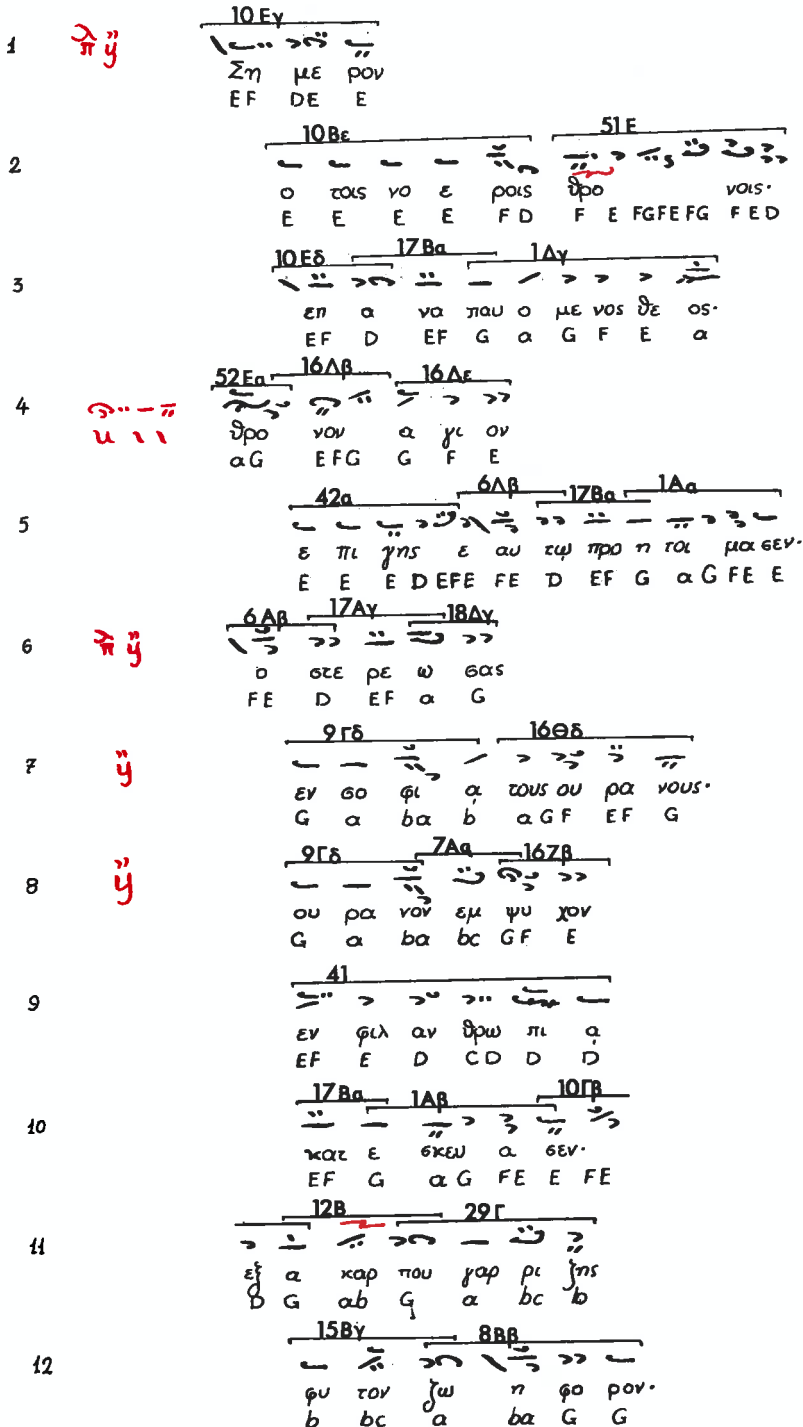 10 Εγ
1
Ση με ρον
EF DE E
10 Βε 51 Ε
2
ο τοις νο ε ροις θρο νοις·
E E E E F D F E FGFEFG FED
10 Εδ 17 Βα 1 Δγ
3
επ α να παυ ο με νος θε ος·
EF D EF G α G F E α
52 Εα 16 Λβ 16 Δε
4
θρο νον α γι ον
αG EFG G F E
42α 6 Λβ 17 Βα 1 Αα
5
ε πι γης ε αυ τω προ η τοι μα σεν·
E E E D EFE FE D EF G α G FE E
6 Αβ 17 Αγ 18 Δγ
6
ο στε ρε ω σας
FE D EF α G
9 Γδ 16 Θδ
7
εν σο φι α τους ου ρα νους·
G α bα b α G F EF G
9 Γδ 7 Αα 16 Ζβ
8
ου ρα νον εμ ψυ χον
G α bα bc GF E
41
9
εν φιλ αν θρω πι α
EF E D CD D D
17 Βα 1 Αβ 10 Γβ
10
κατ ε σκευ α σεν·
EF G α G FE E FE
12 Β 29 Γ
11
εξ α καρ που γαρ ρι ζης
D G αb G α bc b
15 Βγ 8 Ββ
12
φυ τον ζω η φο ρον·
b bc α bα G G